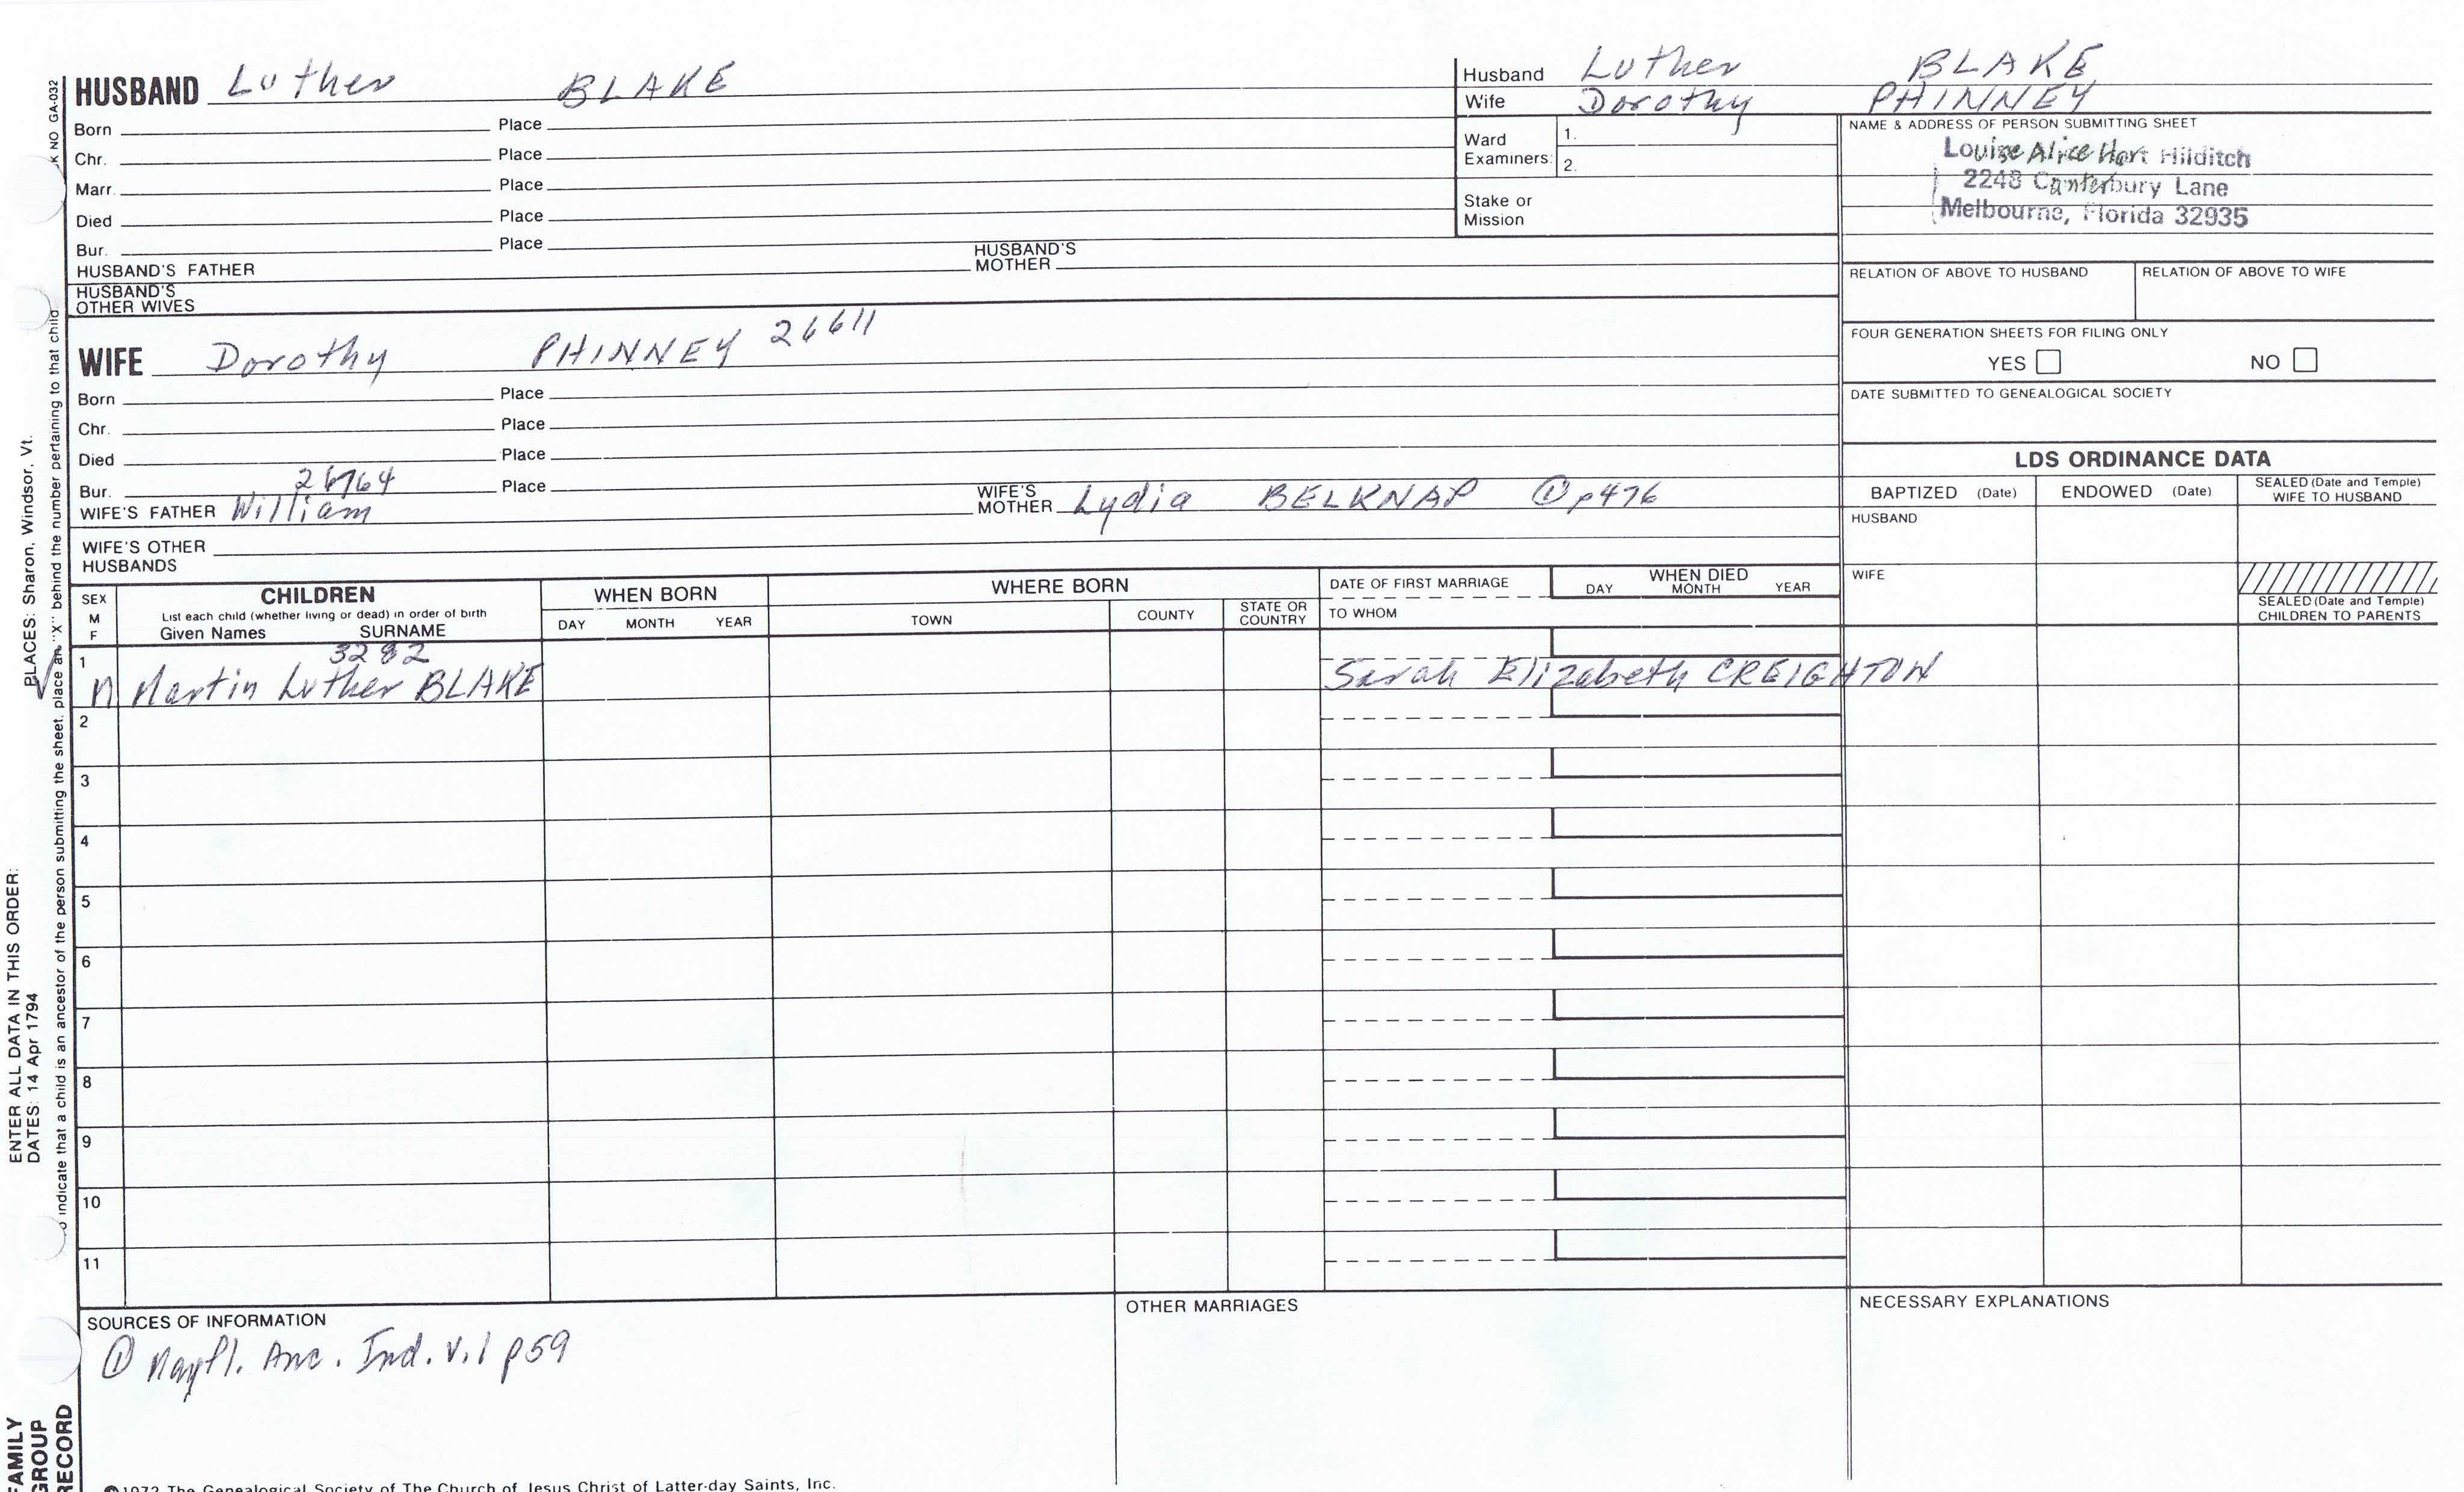 HUSBAND Luther BLAKE
Born Place
Chr. Place
Marr. Place
Died Place
Bur. Place
HUSBAND'S FATHER HUSBAND'S MOTHER
HUSBAND'S OTHER WIVES
WIFE Dorothy PHINNEY 26611
Born Place
Chr. Place
Died Place
Bur. Place
WIFE'S FATHER William WIFE'S MOTHER Lydia BELKNAP ① p476
WIFE'S OTHER HUSBANDS
Husband Luther BLAKE
Wife Dorothy PHINNEY
Ward Examiners: 1.
2.
Stake or Mission
NAME & ADDRESS OF PERSON SUBMITTING SHEET
Louise Alice Hart Hilditch
2248 Canterbury Lane
Melbourne, Florida 32935
RELATION OF ABOVE TO HUSBAND RELATION OF ABOVE TO WIFE
FOUR GENERATION SHEETS FOR FILING ONLY
YES NO
DATE SUBMITTED TO GENEALOGICAL SOCIETY
LDS ORDINANCE DATA
BAPTIZED (Date) ENDOWED (Date) SEALED (Date and Temple) WIFE TO HUSBAND
HUSBAND
WIFE
SEALED (Date and Temple) CHILDREN TO PARENTS
SEX M F
CHILDREN
List each child (whether living or dead) in order of birth
Given Names SURNAME
WHEN BORN
DAY MONTH YEAR
WHERE BORN
TOWN COUNTY STATE OR COUNTRY
DATE OF FIRST MARRIAGE
TO WHOM
WHEN DIED
DAY MONTH YEAR
3282
1 M Martin Luther BLAKE Sarah Elizabeth CREIGHTON
2
3
4
5
6
7
8
9
10
11
SOURCES OF INFORMATION
① Mayfl. Anc. Ind. V.1 p59
OTHER MARRIAGES
NECESSARY EXPLANATIONS
©1972 The Genealogical Society of The Church of Jesus Christ of Latter-day Saints, Inc.
NO GA-032
indicate that a child is an ancestor of the person submitting the sheet, place an "X" behind the number pertaining to that child
ENTER ALL DATA IN THIS ORDER:
DATES: 14 Apr 1794 PLACES: Sharon, Windsor, Vt.
FAMILY
GROUP
RECORD